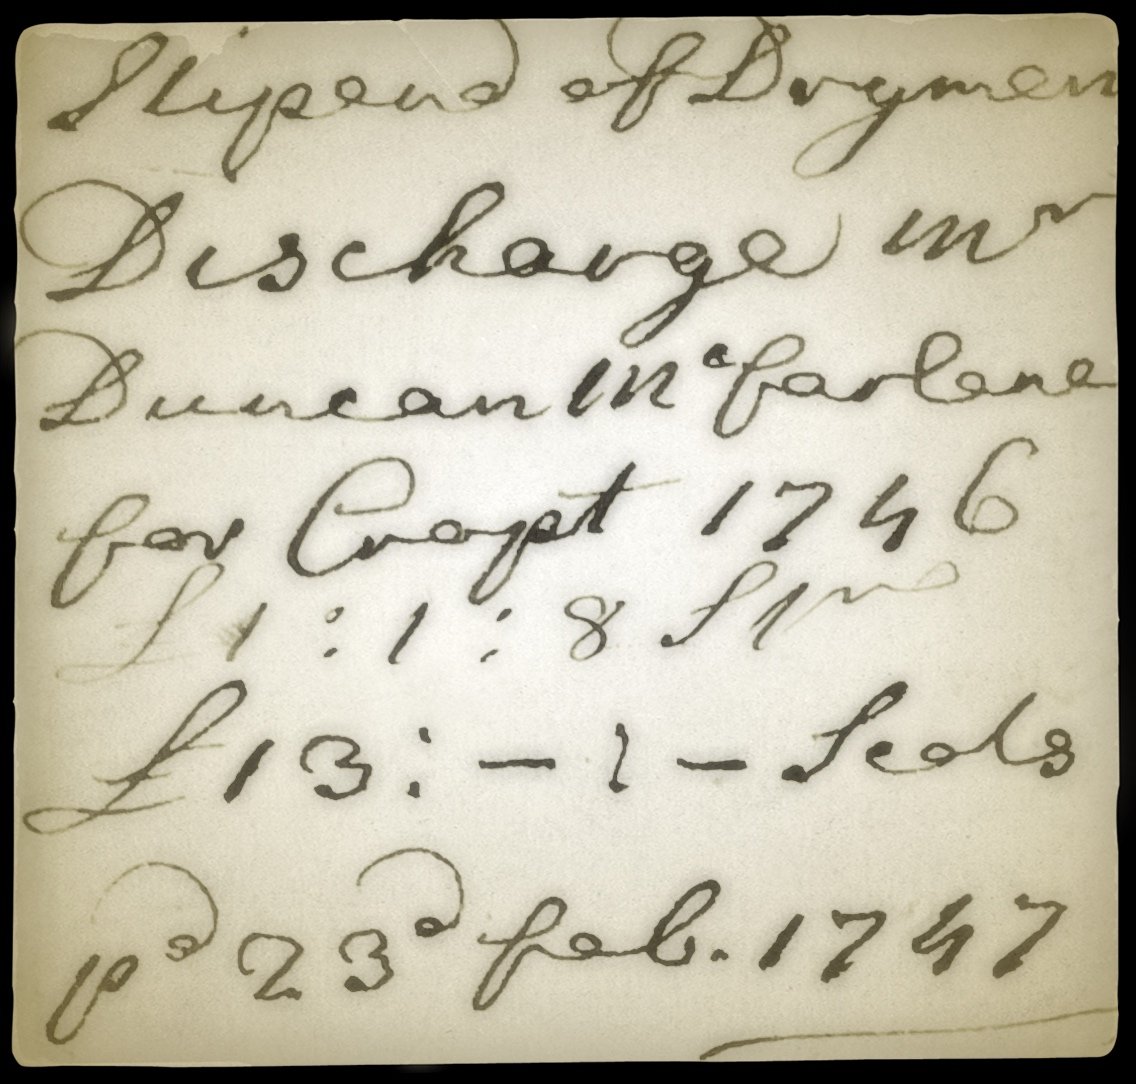 Stipend of Drymen
Discharge Mr
Duncan Mcfarlane
for Cropt 1746
£1 : 1 : 8 St
£13 : — : — Scots
pd 23d feb. 1747